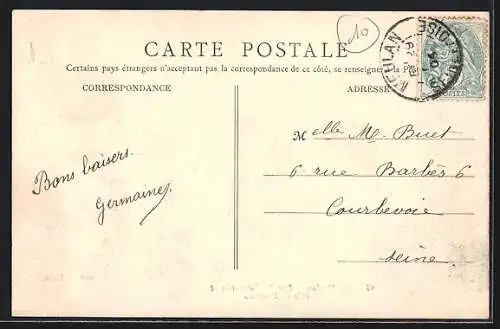 10
CARTE POSTALE
Certains pays étrangers n'acceptant pas la correspondance de ce côté, se renseigner à la
CORRESPONDANCE
ADRESSE
MEULAN
SEINE-ET-OISE
Bons baisers.
Germaine.
Melle M. Buet
6 rue Barbès 6
Courbevoie
Seine.